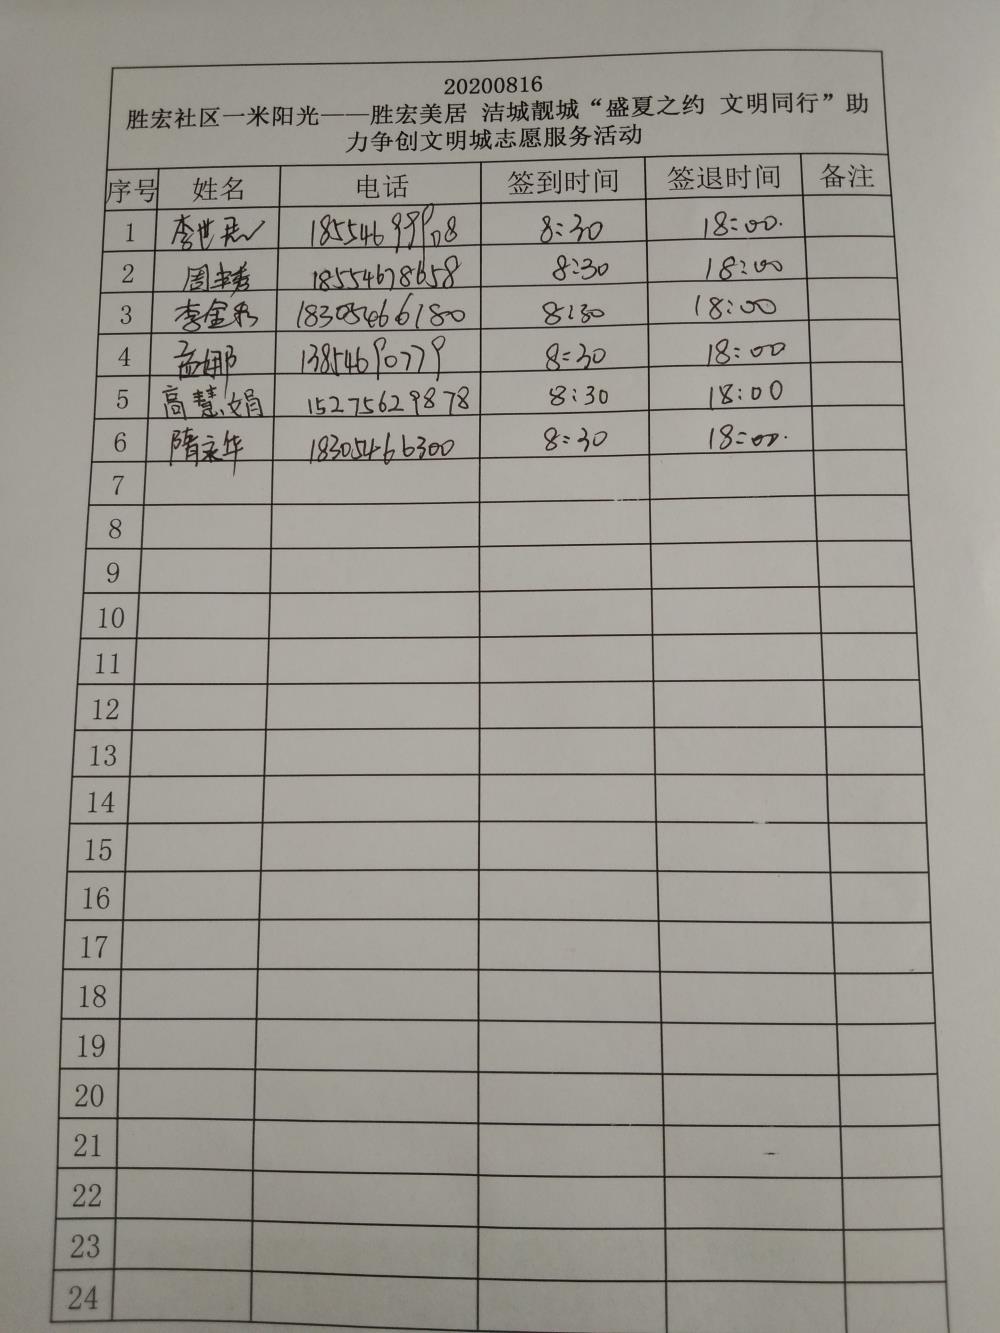 20200816
胜宏社区一米阳光——胜宏美居 洁城靓城“盛夏之约 文明同行”助
力争创文明城志愿服务活动
序号 姓名 电话 签到时间 签退时间 备注
1 李世 8:30 18:00.
2 周 18554678658 8:30 18:00
3 李金 18305466180 8:30 18:00
4 孟娜 13854690779 8:30 18:00
5 高慧娟 15275629878 8:30 18:00
6 隋永华 18305466300 8:30 18:00.
7
8
9
10
11
12
13
14
15
16
17
18
19
20
21
22
23
24